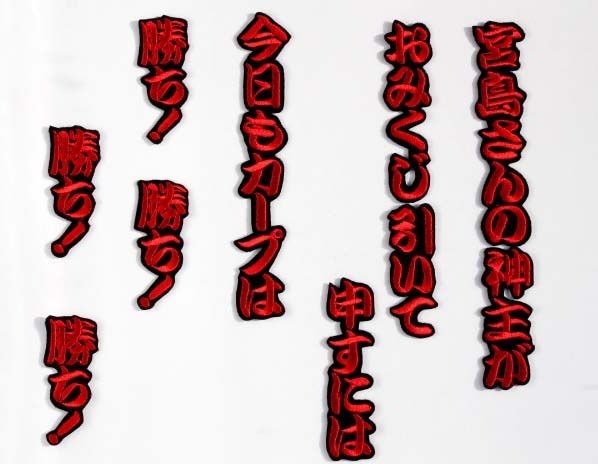 宮島さんの神主が
おみくじ引いて
申すには
今日もカープは
勝ち!
勝ち!
勝ち!
勝ち!